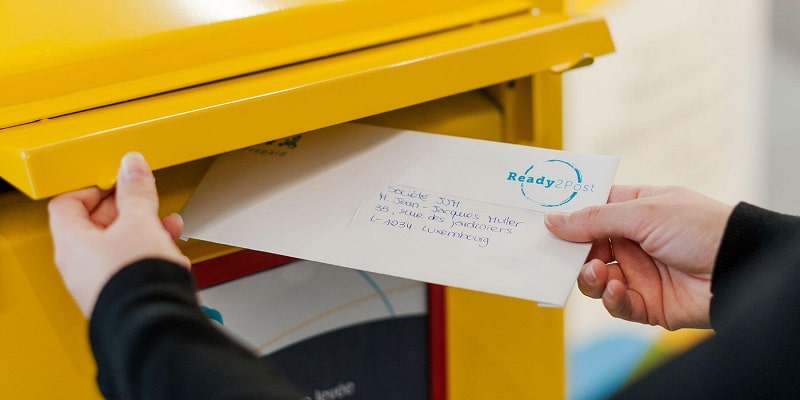 Ready2Post
Société JJM
M Jean-Jacques Muller
38, rue des Jardiniers
L-1234 Luxembourg
levée